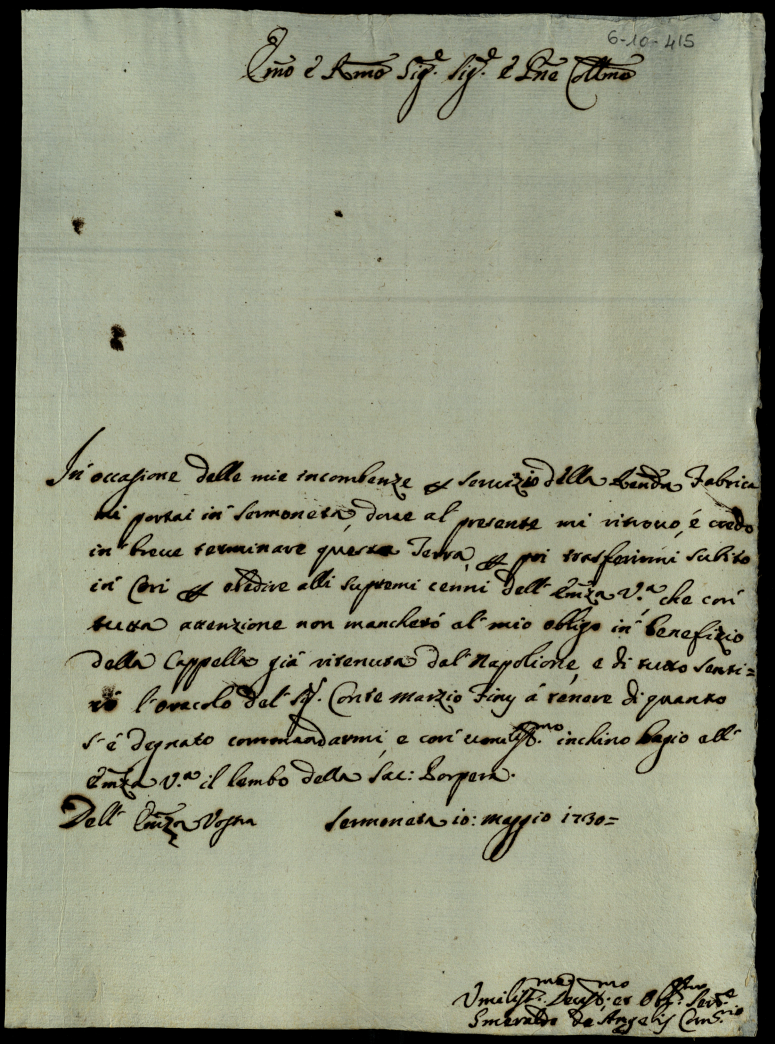 6-10-415
Emo e Rmo Sig.e Sig.e e Pne Collmo
In' occasione delle mie incombenze p servizio della Renda Fabrica
mi portai in' Sermoneta, dove al presente mi ritrovo, é credo
in' breve terminare questa Terra, p poi trasferirmi subito
in' Cori p obedire alli supremi cenni dell' Emza V.a che con'
tutta attenzione non mancherò al' mio obligo in' benefizio
della Cappella già ritenuta dal' Napolione, e di tutto senti=
rò l'oracolo del' Sig.e Conte Marzio Finy á tenore di quanto
s' é degnato commandarmi, e con' umiliss.mo inchino bagio all'
Emza V.a il lembo della Sac: Porpera.
Dell' Emza Vostra Sermoneta 10: Maggio 1730=
Umiliss.mo Devot.mo et Obb.mo Serv.e
Smeraldo de Angelis Com.rio